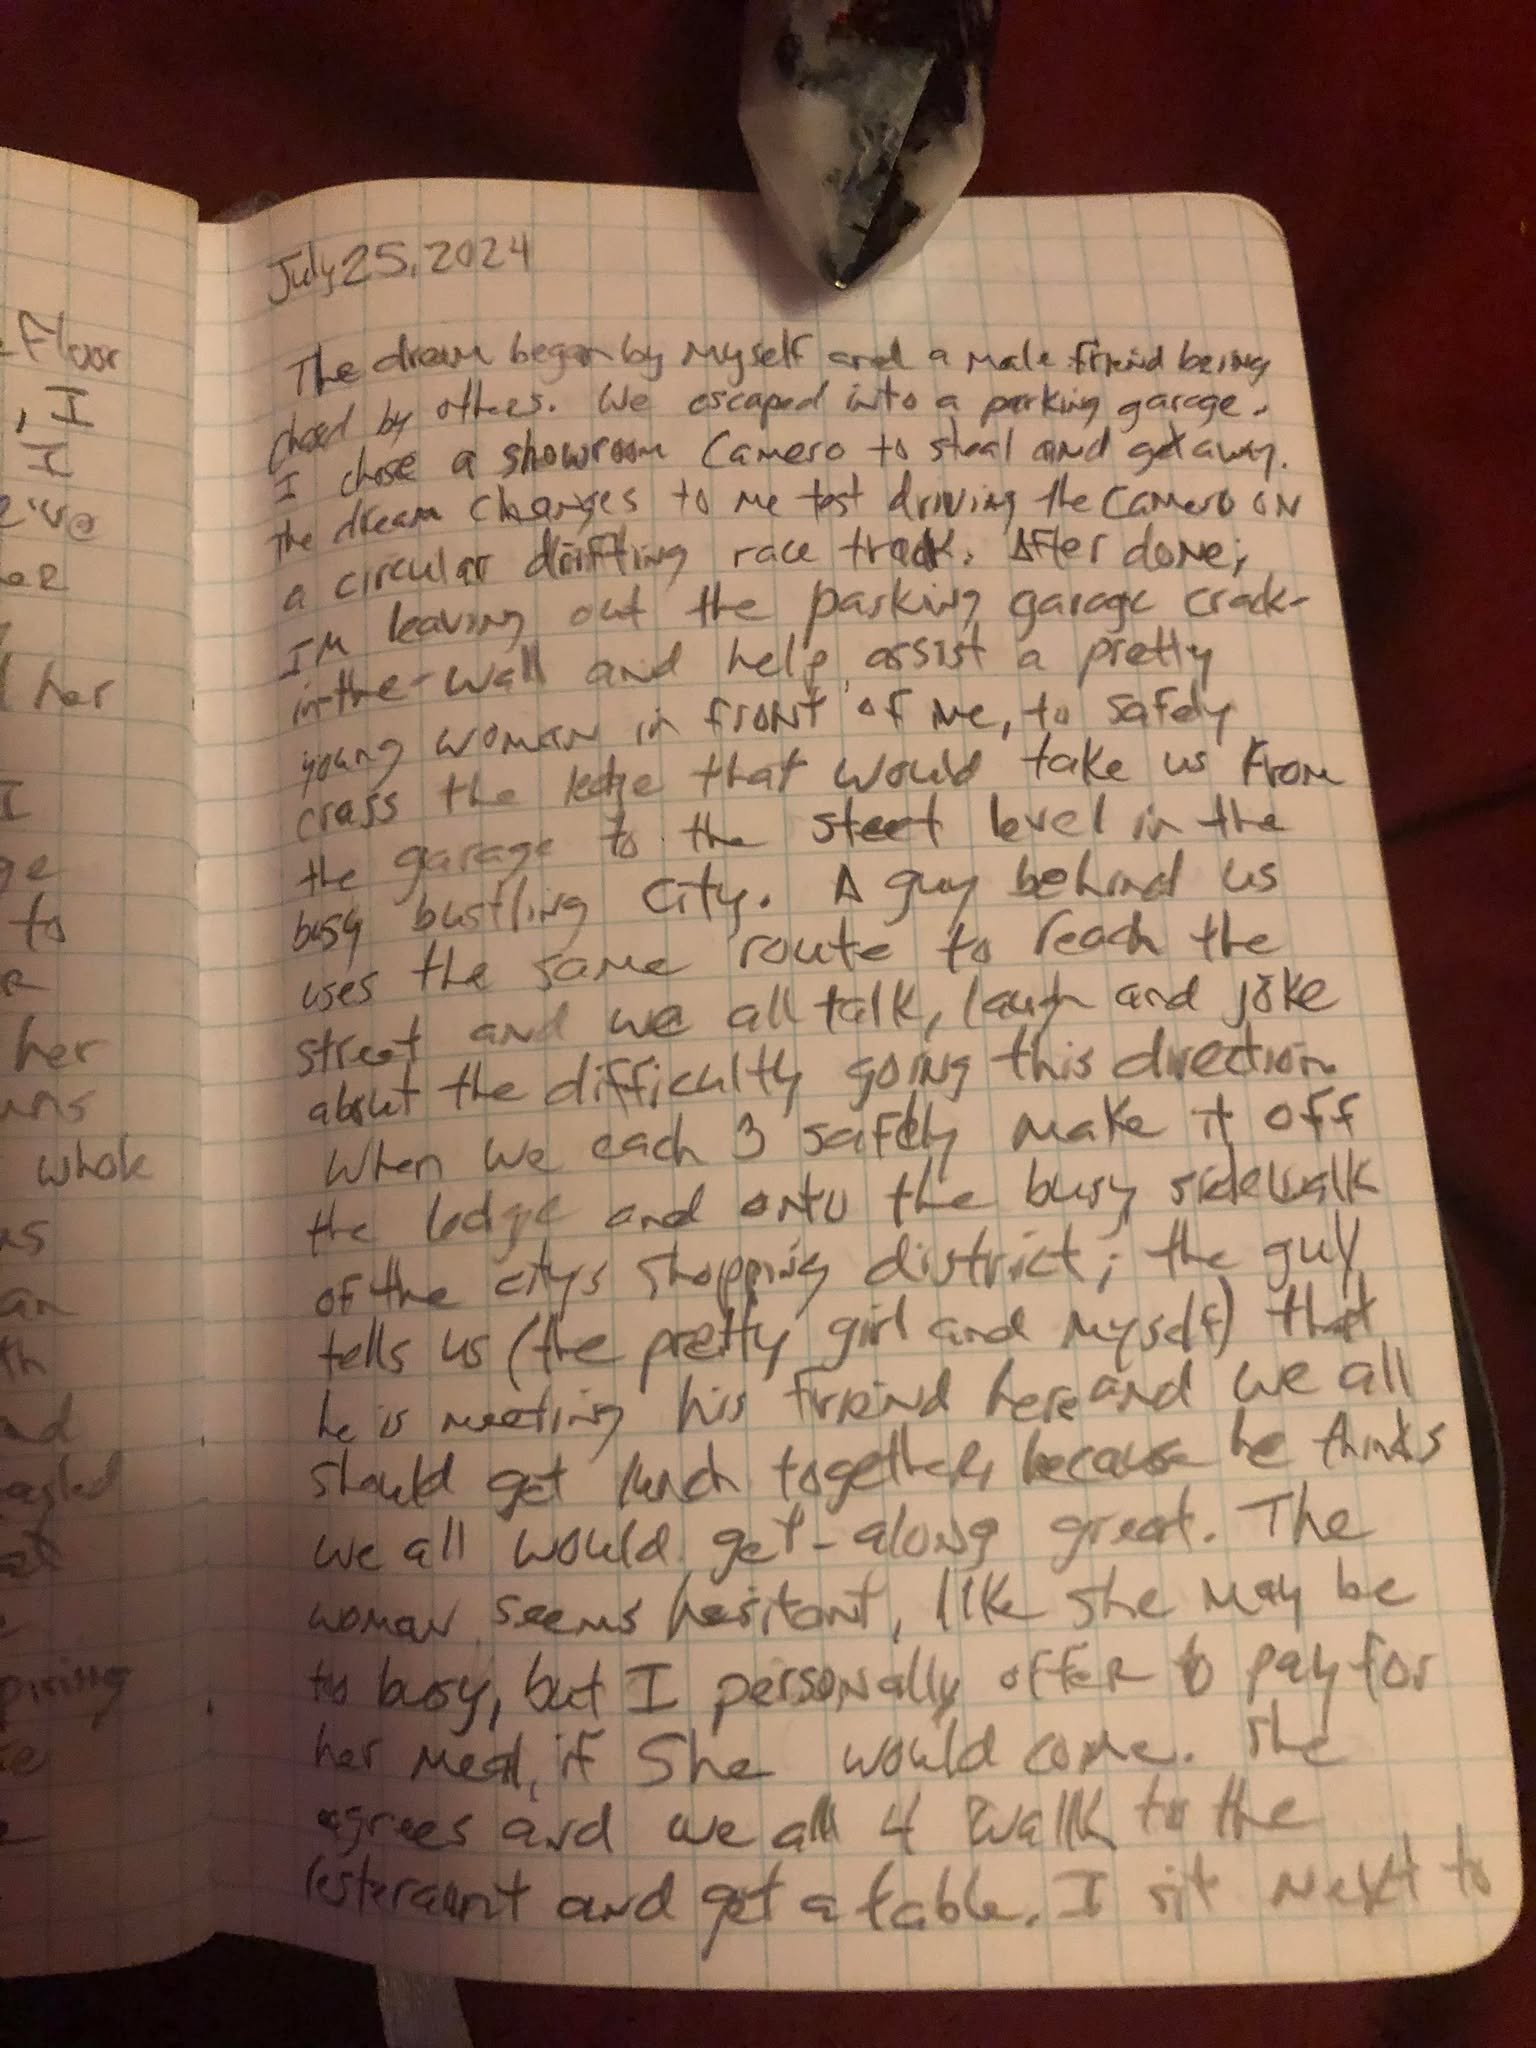 Floor
, I
I
her
I
to
her
whole
piring
July 25, 2024
The dream began by myself and a male friend being
chased by others. We escaped into a parking garage.
I chose a showroom Camero to steal and get away.
The dream changes to me test driving the Camero on
a circular drifting race track. After done;
I'm leaving out the parking garage crack-
in-the-wall and help assist a pretty
young woman in front of me, to safely
cross the ledge that would take us from
the garage to the steet level in the
busy bustling city. A guy behind us
uses the same route to reach the
street and we all talk, laugh and joke
about the difficulty going this direction.
When we each 3 safely make it off
the ledge and onto the busy sidewalk
of the citys shopping district; the guy
tells us (the pretty girl and myself) that
he is meeting his friend here and we all
should get lunch together, because he thinks
we all would get-along great. The
woman seems hesitant, like she may be
to busy, but I personally offer to pay for
her meal, if She would come. She
agrees and we all 4 walk to the
resteraunt and get a table. I sit next to